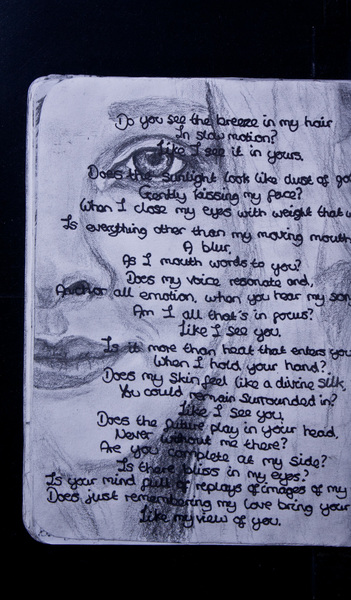 Do you see the breeze in my hair
In slow motion?
Like I see it in yours.
Does the sunlight look like dust of go
Gently kissing my face?
When I close my eyes with weight that w
Is everything other than my moving mouth
A blur,
As I mouth words to you?
Does my voice resonate and,
Anchor all emotion, when you hear my son
Am I all that's in focus?
Like I see you,
Is it more than heat that enters you
When I hold your hand?
Does my skin feel like a divine silk,
You could remain surrounded in?
Like I see you,
Does the future play in your head,
Never without me there?
Are you complete at my side?
Is there bliss in my eyes?
Is your mind full of replays of images of my
Does just remembering my love bring your
Like my view of you.